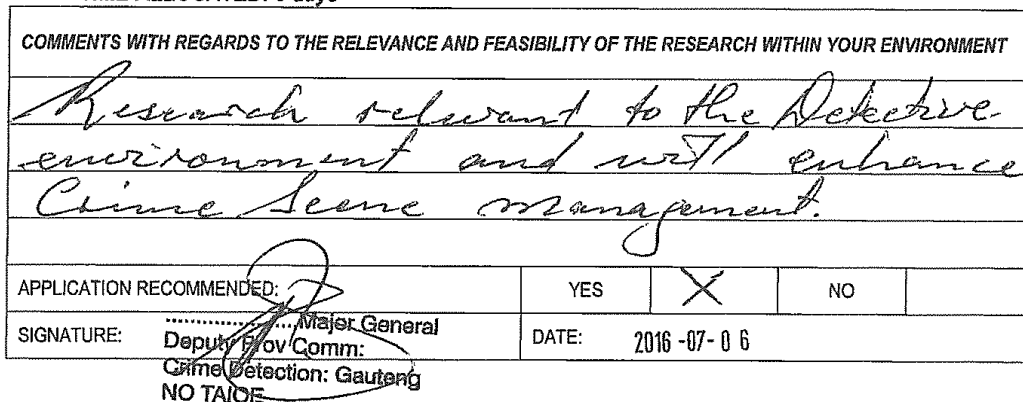 COMMENTS WITH REGARDS TO THE RELEVANCE AND FEASIBILITY OF THE RESEARCH WITHIN YOUR ENVIRONMENT
Research relevant to the Detective
environment and will enhance
Crime Scene management.
APPLICATION RECOMMENDED: YES X NO
SIGNATURE: ................ Major General DATE: 2016-07-06
Deputy Prov Comm:
Crime Detection: Gauteng
NO TAIOE